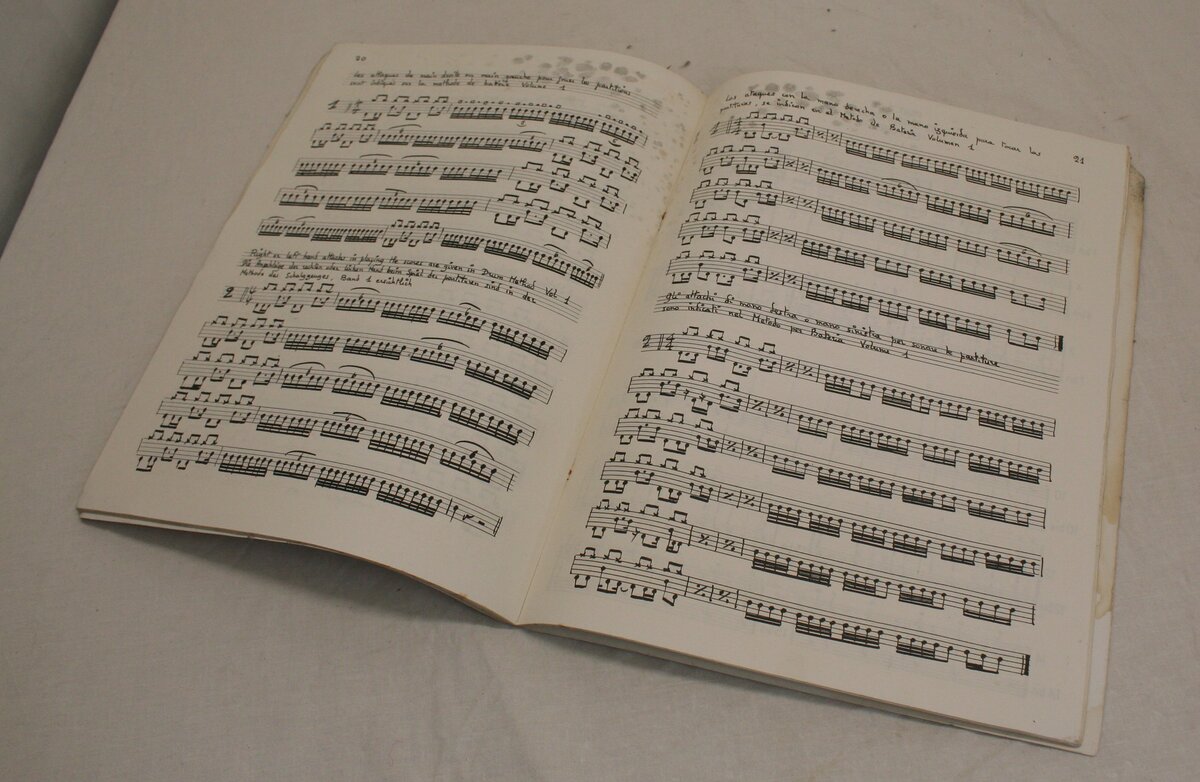 20
Les attaques de main droite ou main gauche pour jouer les partitions
sont indiqués sur la méthode de batterie Volume 1
1
Right or left hand attacks in playing the scores are given in Drum Method Vol 1
Die Anschläge der rechten oder linken Hand beim Spiel der partituren sind in der
Methode des Schalagzeuges. Band 1 ersichtlich
2
6
6
21
Los ataques con la mano derecha o la mano izquierda para tocar las
partituras, se indican en el Metodo de Bateria Volumen 1
1
Gli attachi di mano destra o mano sinistra per sonare le partiture
sono indicati nel Metodo per Batteria Volume 1
2 4